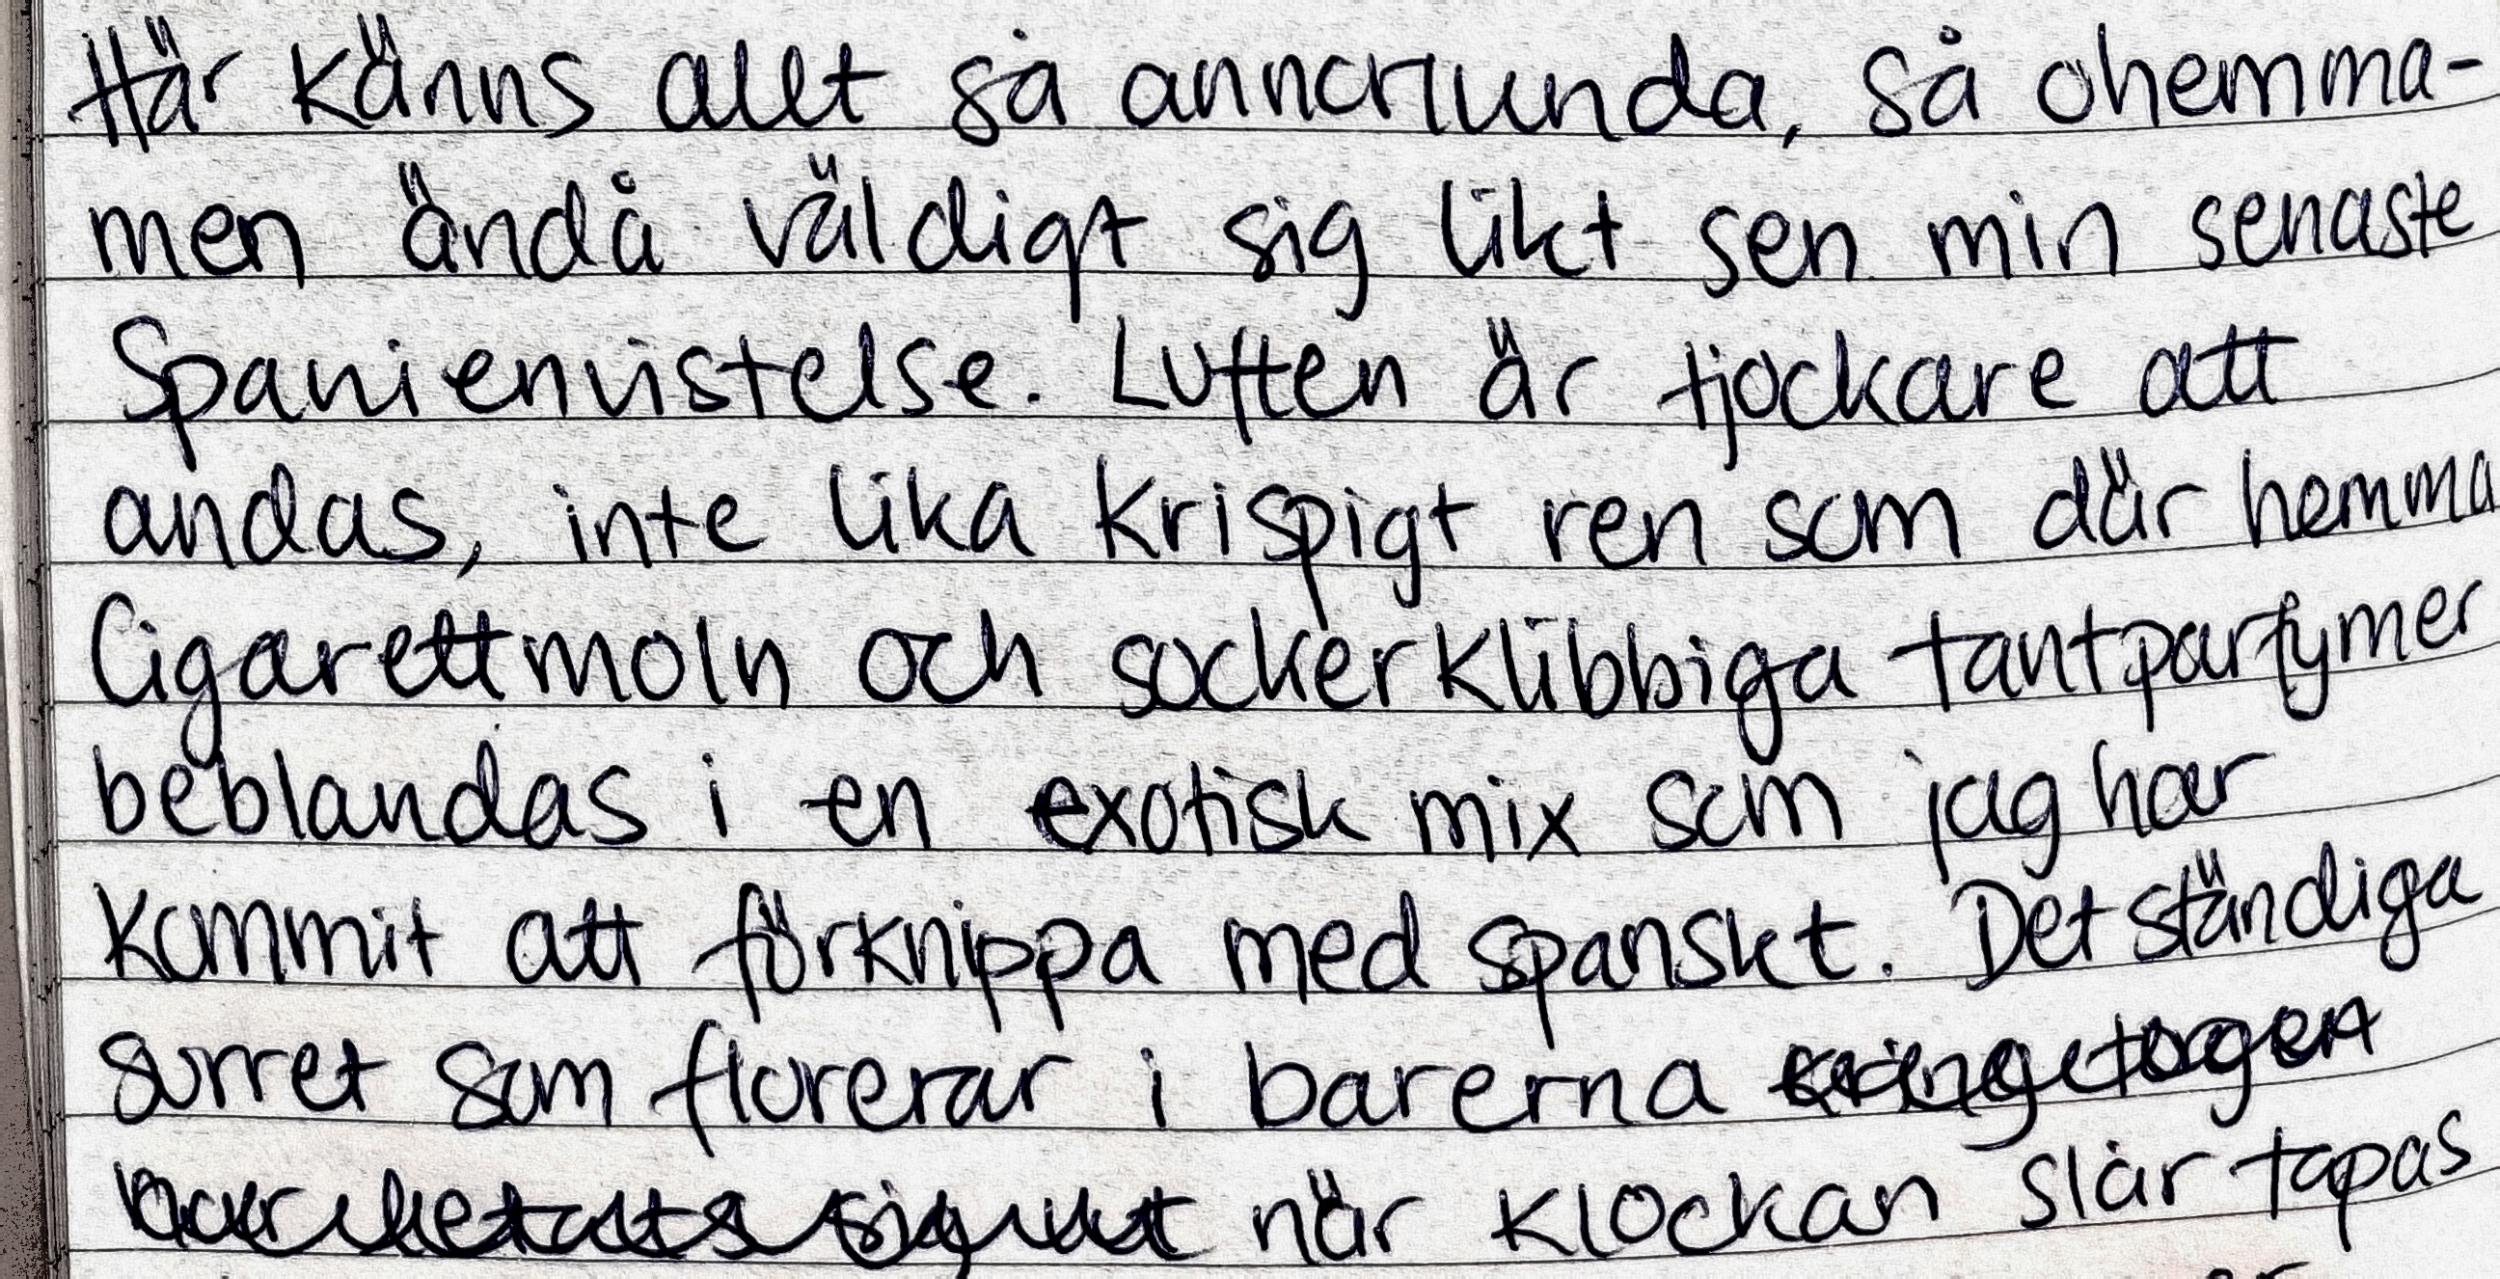 Här känns allt så annorlunda, så ohemma-
men ändå väldigt sig likt sen min senaste
Spanienvistelse. Luften är tjockare att
andas, inte lika krispigt ren som där hemma
Cigarettmoln och sockerklibbiga tantparfymer
beblandas i en exotisk mix som jag har
kommit att förknippa med spanskt. Det ständiga
sorret som florerar i barerna
när klockan slår tapas